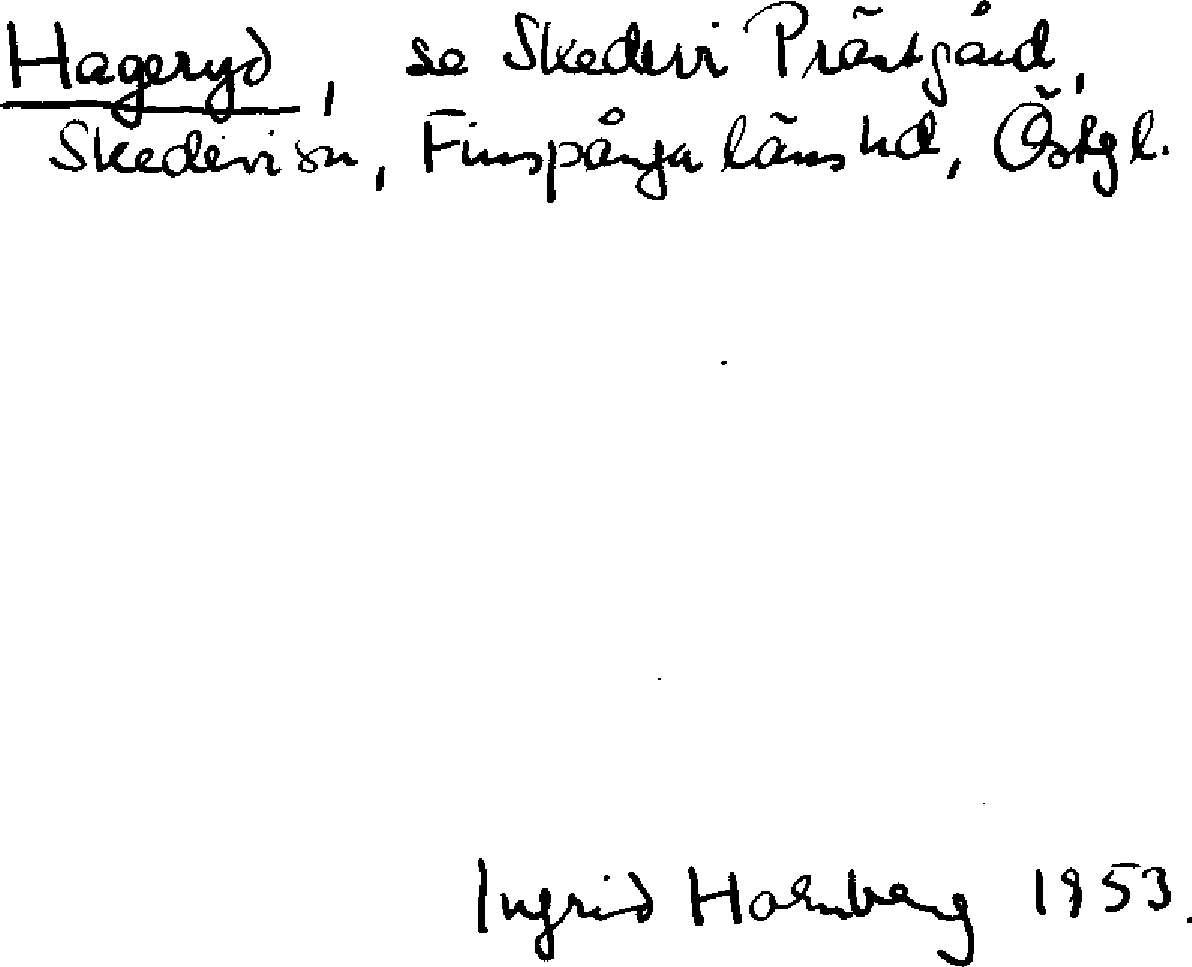 Hageryd, se Skedevi Prästgård,
Skedevi sn, Finspånga läns hd, Östgl.
Ingrid Holmberg 1953.